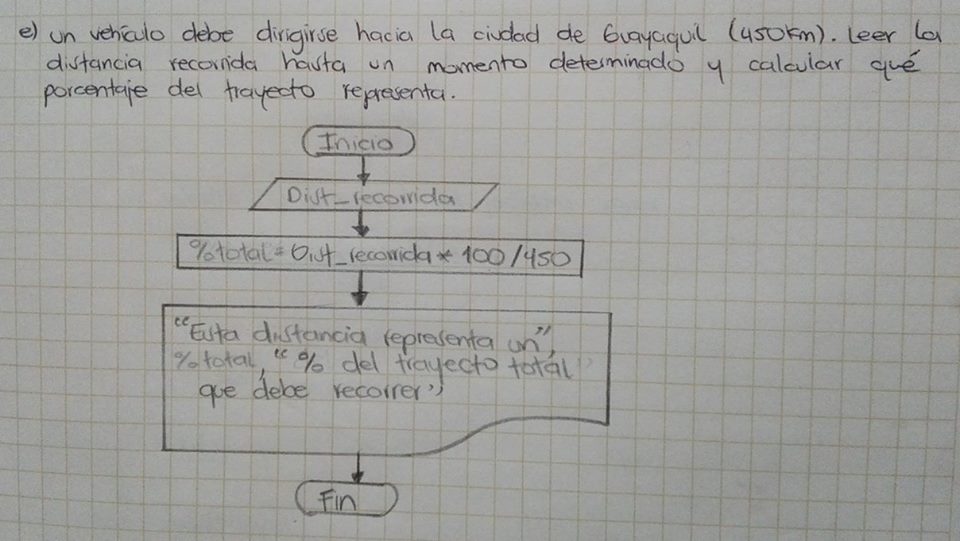 e) un vehículo debe dirigirse hacia la ciudad de Guayaquil (450km). Leer la
distancia recorrida hasta un momento determinado y calcular qué
porcentaje del trayecto representa.
Inicio
Dist_recorrida
%total = Dist_recorrida * 100/450
"Esta distancia representa un",
%total, "% del trayecto total
que debe recorrer"
Fin